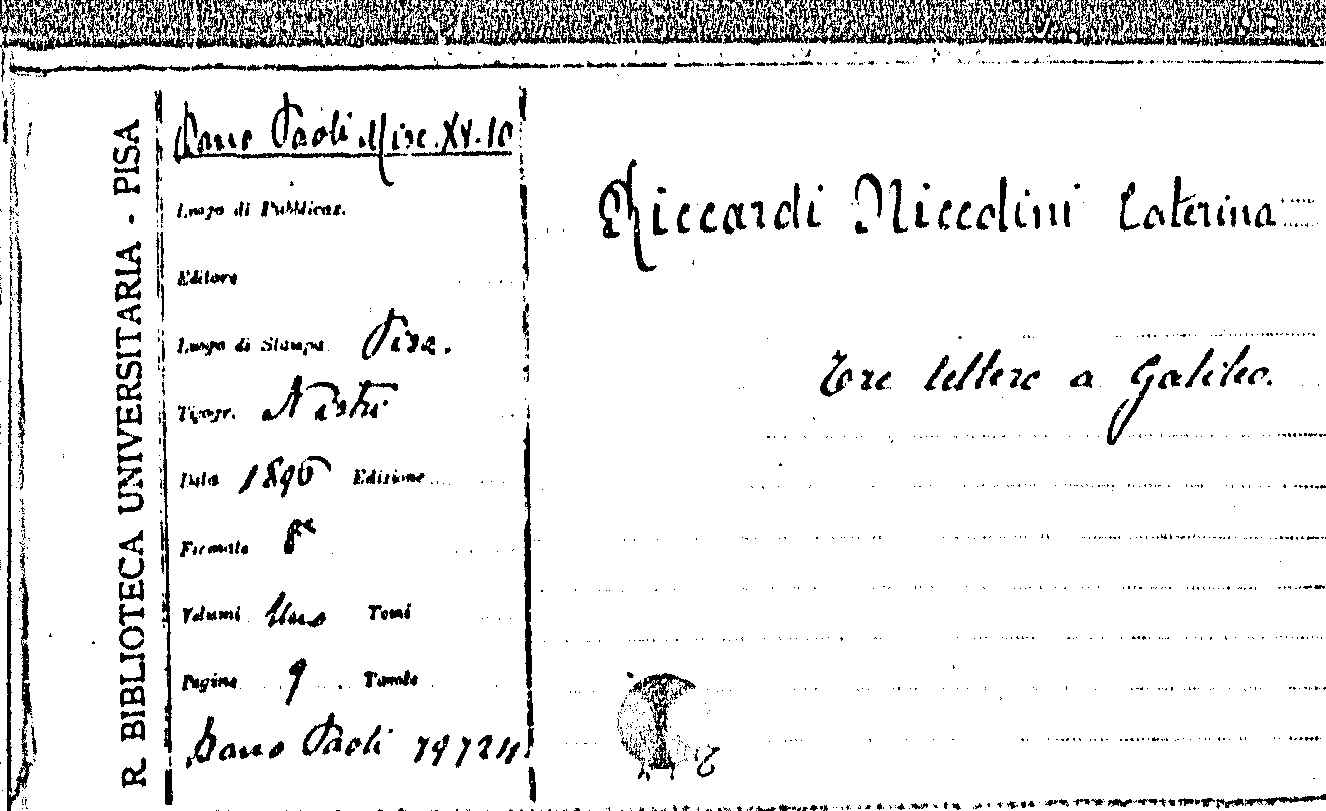 R. BIBLIOTECA UNIVERSITARIA - PISA
Dono Paoli Misc. XV. 10
Luogo di Pubblicaz.
Editore
Luogo di Stampa Pisa.
Tipogr. Nistri
Data 1896 Edizione
Formato 8º
Volumi Uno Tomi
Pagine 9 Tavole
Dono Paoli
Riccardi Niccolini Caterina
Tre lettere a Galileo.